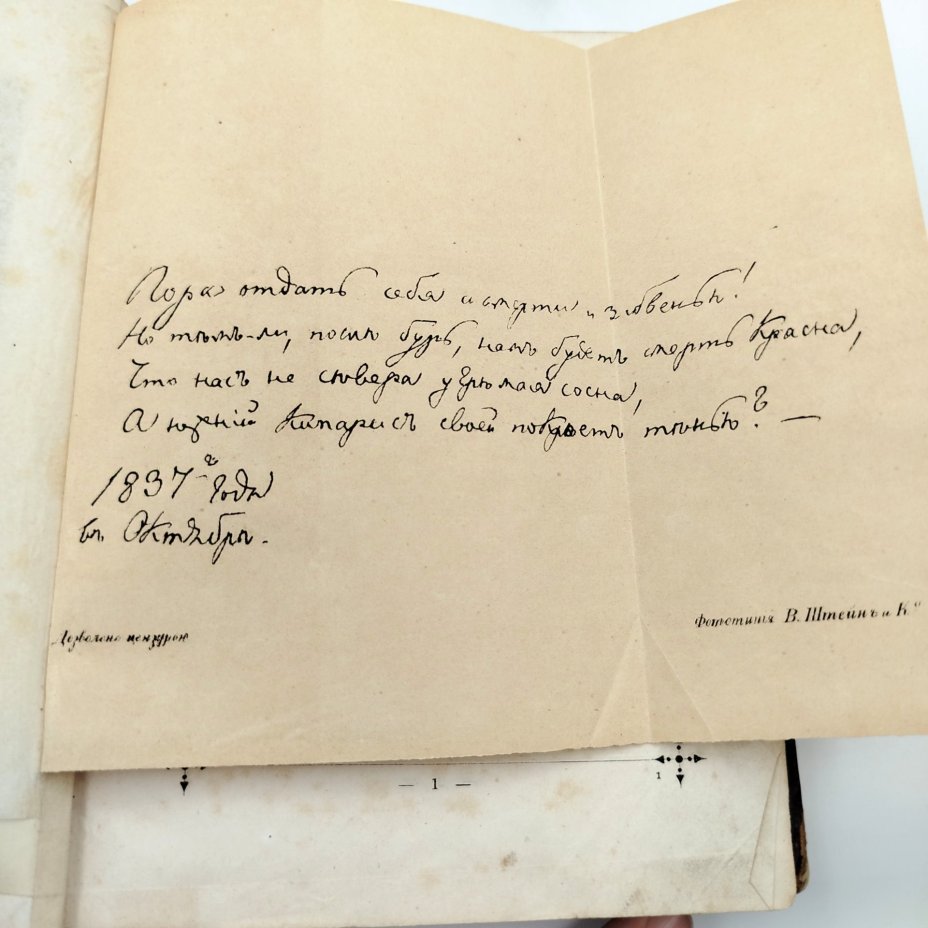 Пора отдать себя и смерти и забвенью!
Но тѣмъ-ли, послѣ бурь, намъ будетъ смерть красна,
Что насъ не сѣвера угрюмая сосна,
А южный Кипарисъ своей покроетъ тѣнью? —
1837 г Года
въ Октябрѣ.
Дозволено цензурою
Фототипія В. Штейнъ и Кº
— 1 —
1